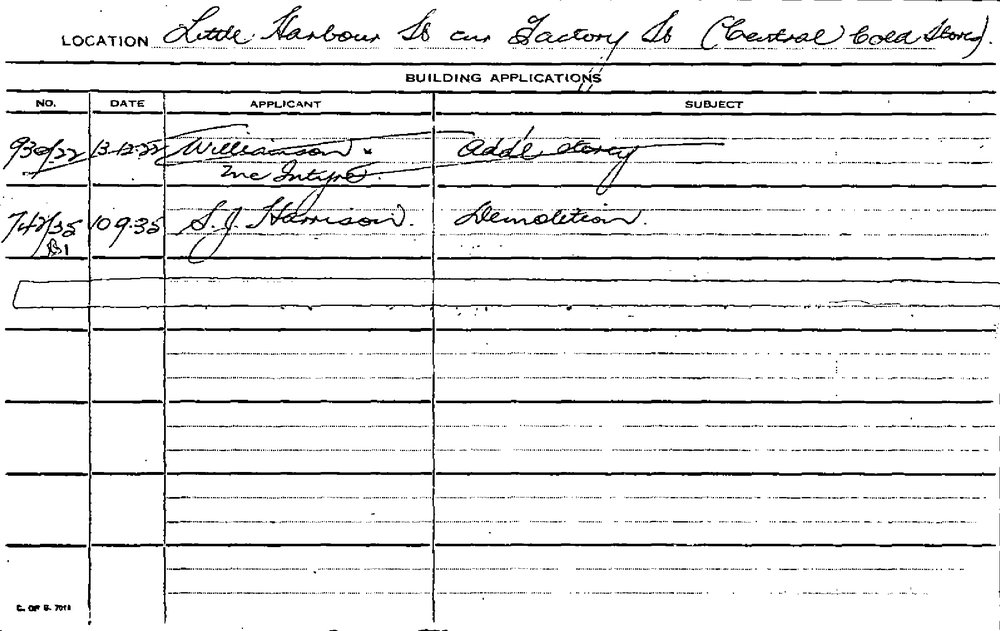 LOCATION Little Harbour St cnr Factory St (Central Cold Stores).
BUILDING APPLICATIONS
NO. DATE APPLICANT SUBJECT
930/22 13.12.22 Williamson & Add'l storey
McIntyre.
742/35 10 9.35 S. J. Harrison. Demolition.
B1
C. OF S. 7018